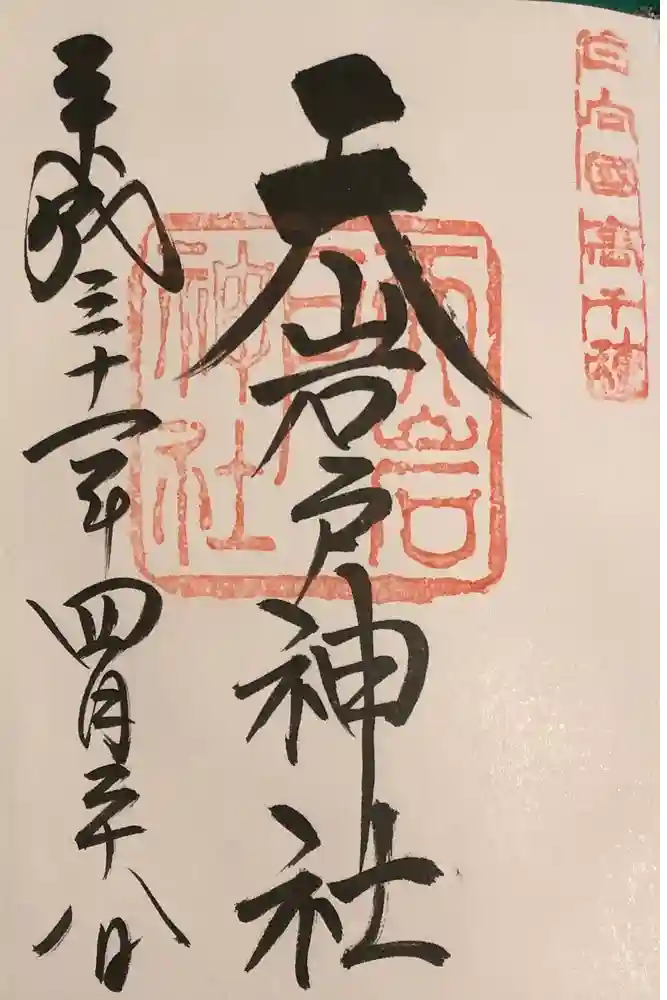 日向國高千穂
天岩戸神社
天岩戸神社
平成三十一年四月二十八日